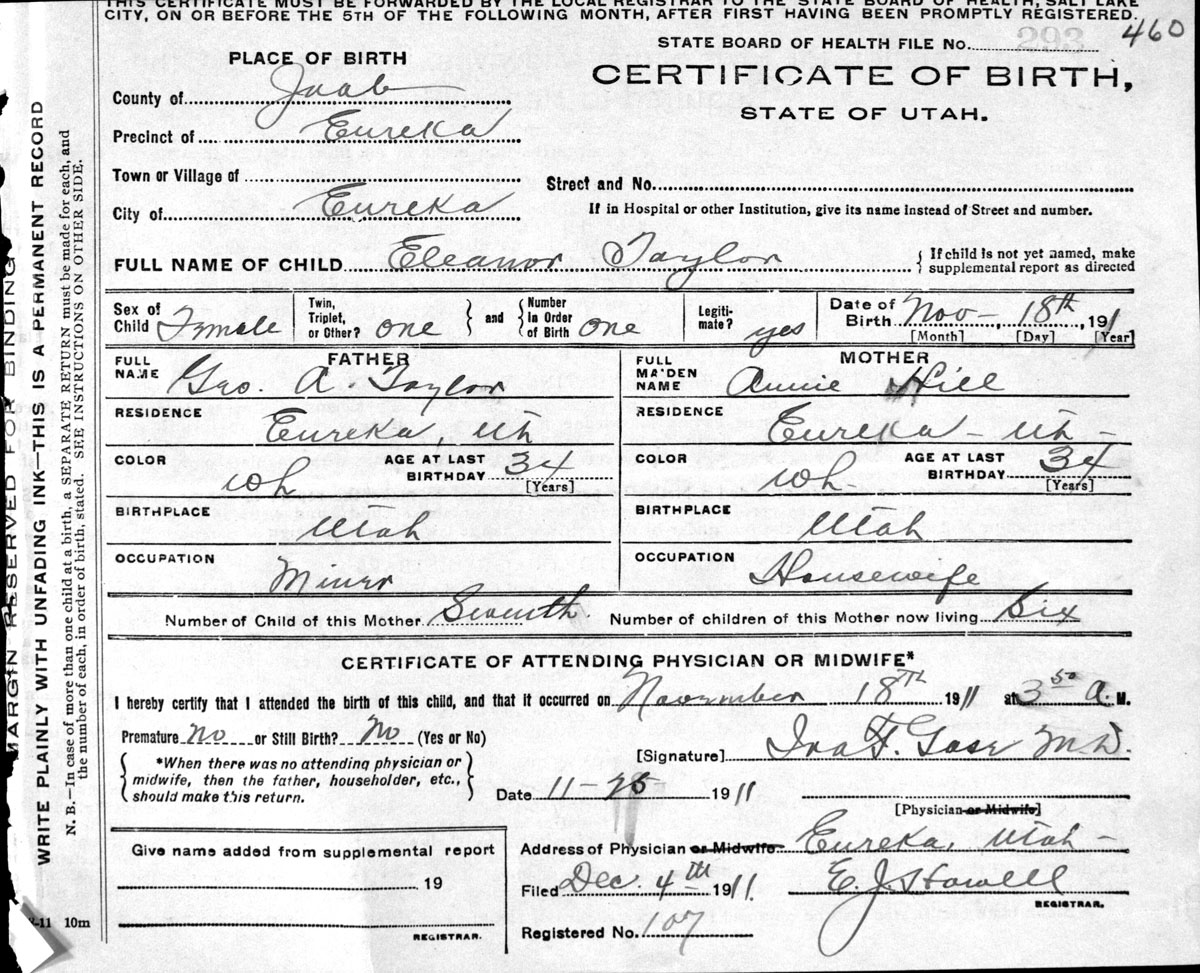 THIS CERTIFICATE MUST BE FORWARDED BY THE LOCAL REGISTRAR TO THE STATE BOARD OF HEALTH, SALT LAKE
CITY, ON OR BEFORE THE 5TH OF THE FOLLOWING MONTH, AFTER FIRST HAVING BEEN PROMPTLY REGISTERED.
460
STATE BOARD OF HEALTH FILE No. 293
PLACE OF BIRTH
CERTIFICATE OF BIRTH,
STATE OF UTAH.
County of Juab
Precinct of Eureka
Town or Village of
Street and No.
City of Eureka
If in Hospital or other Institution, give its name instead of Street and number.
FULL NAME OF CHILD Eleanor Taylor { If child is not yet named, make
supplemental report as directed
Sex of Child Female Twin, Triplet, or Other? one } and { Number in Order of Birth one Legiti- mate? yes Date of Birth Nov- 18th, 1911
[Month] [Day] [Year]
FATHER MOTHER
FULL NAME Geo. A Taylor FULL MAIDEN NAME Annie Hill
RESIDENCE Eureka, Uth RESIDENCE Eureka - Uth -
COLOR wh AGE AT LAST BIRTHDAY 34 [Years] COLOR wh- AGE AT LAST BIRTHDAY 34 [Years]
BIRTHPLACE Utah BIRTHPLACE Utah
OCCUPATION Miner OCCUPATION Housewife
Number of Child of this Mother Seventh. Number of children of this Mother now living Six
CERTIFICATE OF ATTENDING PHYSICIAN OR MIDWIFE*
I hereby certify that I attended the birth of this child, and that it occurred on November 18TH 1911 at 3 50 A. M.
Premature No or Still Birth? No (Yes or No)
[Signature] F. M.D.
{ *When there was no attending physician or
midwife, then the father, householder, etc.,
should make this return. }
Date 11-25- 1911
[Physician or Midwife]
Address of Physician or Midwife Eureka, Utah -
Filed Dec. 4th 1911. E. J. Howell
REGISTRAR.
Registered No. 107
Give name added from supplemental report
19
REGISTRAR.
-11 10m
MARGIN RESERVED FOR BINDING
WRITE PLAINLY WITH UNFADING INK—THIS IS A PERMANENT RECORD
N. B.—In case of more than one child at a birth, a SEPARATE RETURN must be made for each, and
the number of each, in order of birth, stated. SEE INSTRUCTIONS ON OTHER SIDE.